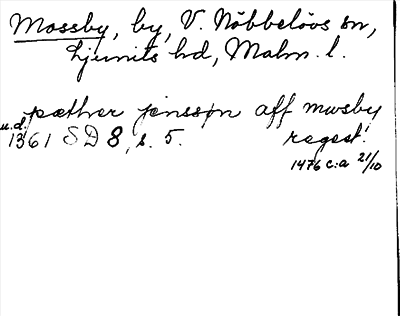 Mossby, by, V. Nöbbelövs sn,
Ljunits hd, Malm. l.
pæther jenssøn aff mwsby
u.d. 1361 SD 8, s. 5. regest!
1476 c:a 21/10